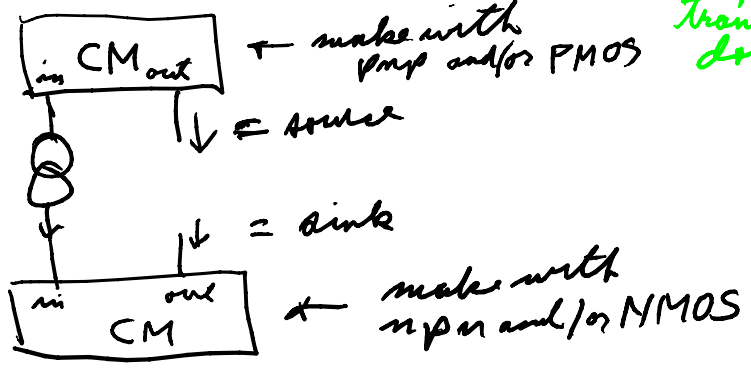 in CM out ← make with
pnp and/or PMOS
↓ = source
↓ = sink
in out
CM ← make with
npn and/or NMOS